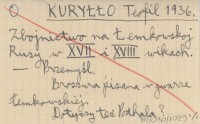 KURYŁŁO Teofil 1936.
Zbojnictwo na Łemkowskoj
Rusy w XVII i XVIII wikach.
— Przemyśl.
Broszura pisana gwarze
łemkowskiej.
Dotyczy też